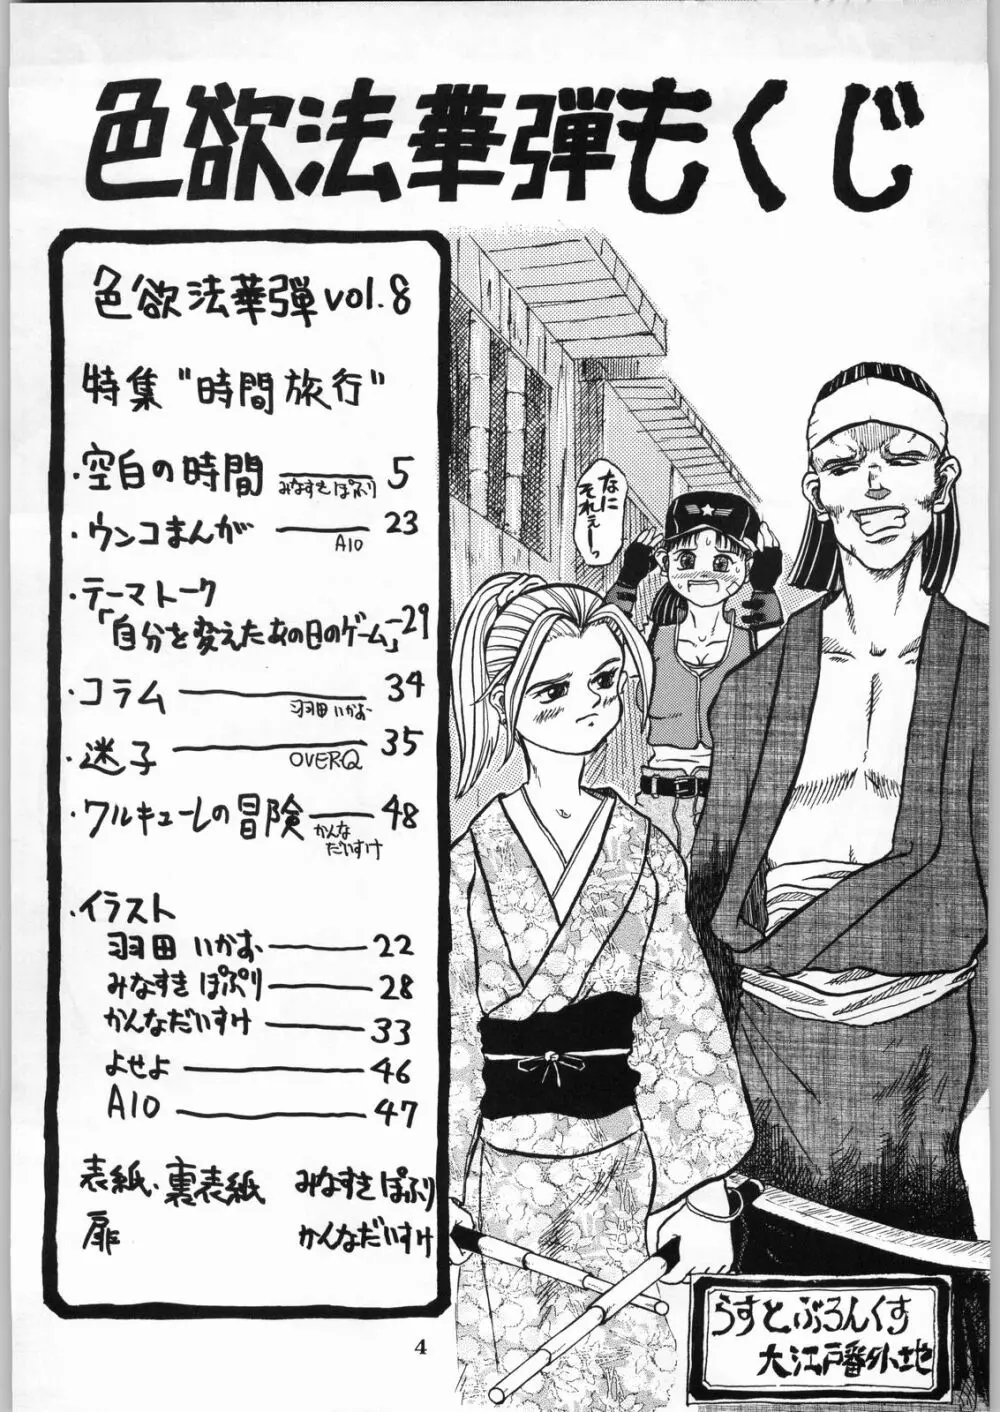 色欲法華弾もくじ
色欲法華弾vol.8
特集"時間旅行"
・空白の時間 5
みなすきぽぷり
・ウンコまんが 23
A10
・テーマトーク
「自分を変えたあの日のゲーム」29
・コラム 34
羽田いかお
・迷子 35
OVERQ
・ワルキューレの冒険 48
かんな
だいすけ
・イラスト
羽田 いかお 22
みなすき ぽぷり 28
かんなだいすけ 33
よせよ 46
A10 47
表紙・裏表紙 みなすき ぽぷり
扉 かんなだいすけ
なに
それぇーっ
らすとぶろんくす
大江戸番外地
4